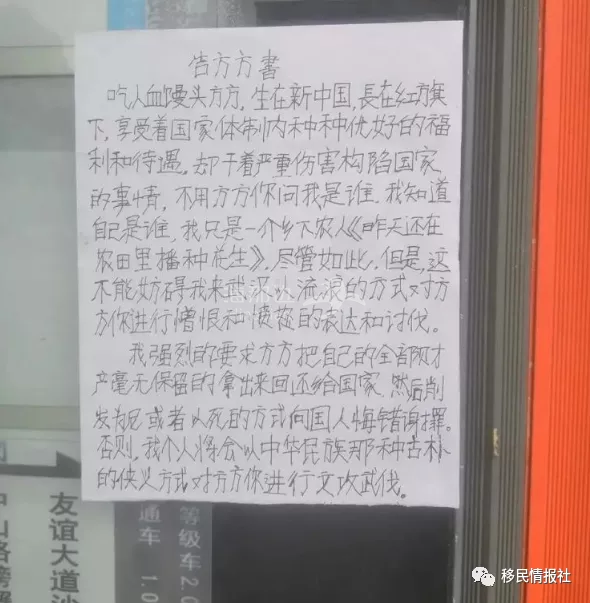 告方方書
吃人血馒头方方，生在新中国，長在红旗
下，享受着国家体制内种种优好的福
利和待遇，却干着严重伤害构陷国家
的事情，不用方方你问我是谁，我知道
自己是谁，我只是一个乡下农人《昨天还在
农田里播种花生》，尽管如此，但是，这
不能妨碍我来武汉以流浪的方式对方
方你进行憎恨和愤怒的表达和讨伐。
我强烈的要求方方把自己的全部财
产毫无保留的拿出来回还给国家，然后削
发为尼或者以死的方式向国人悔错谢罪。
否则，我个人将会以中华民族那种古朴
的侠义方式对方方你进行文攻武伐。
友谊大道沙
中山路
等级车2.0
通车 1.0
移民情报社